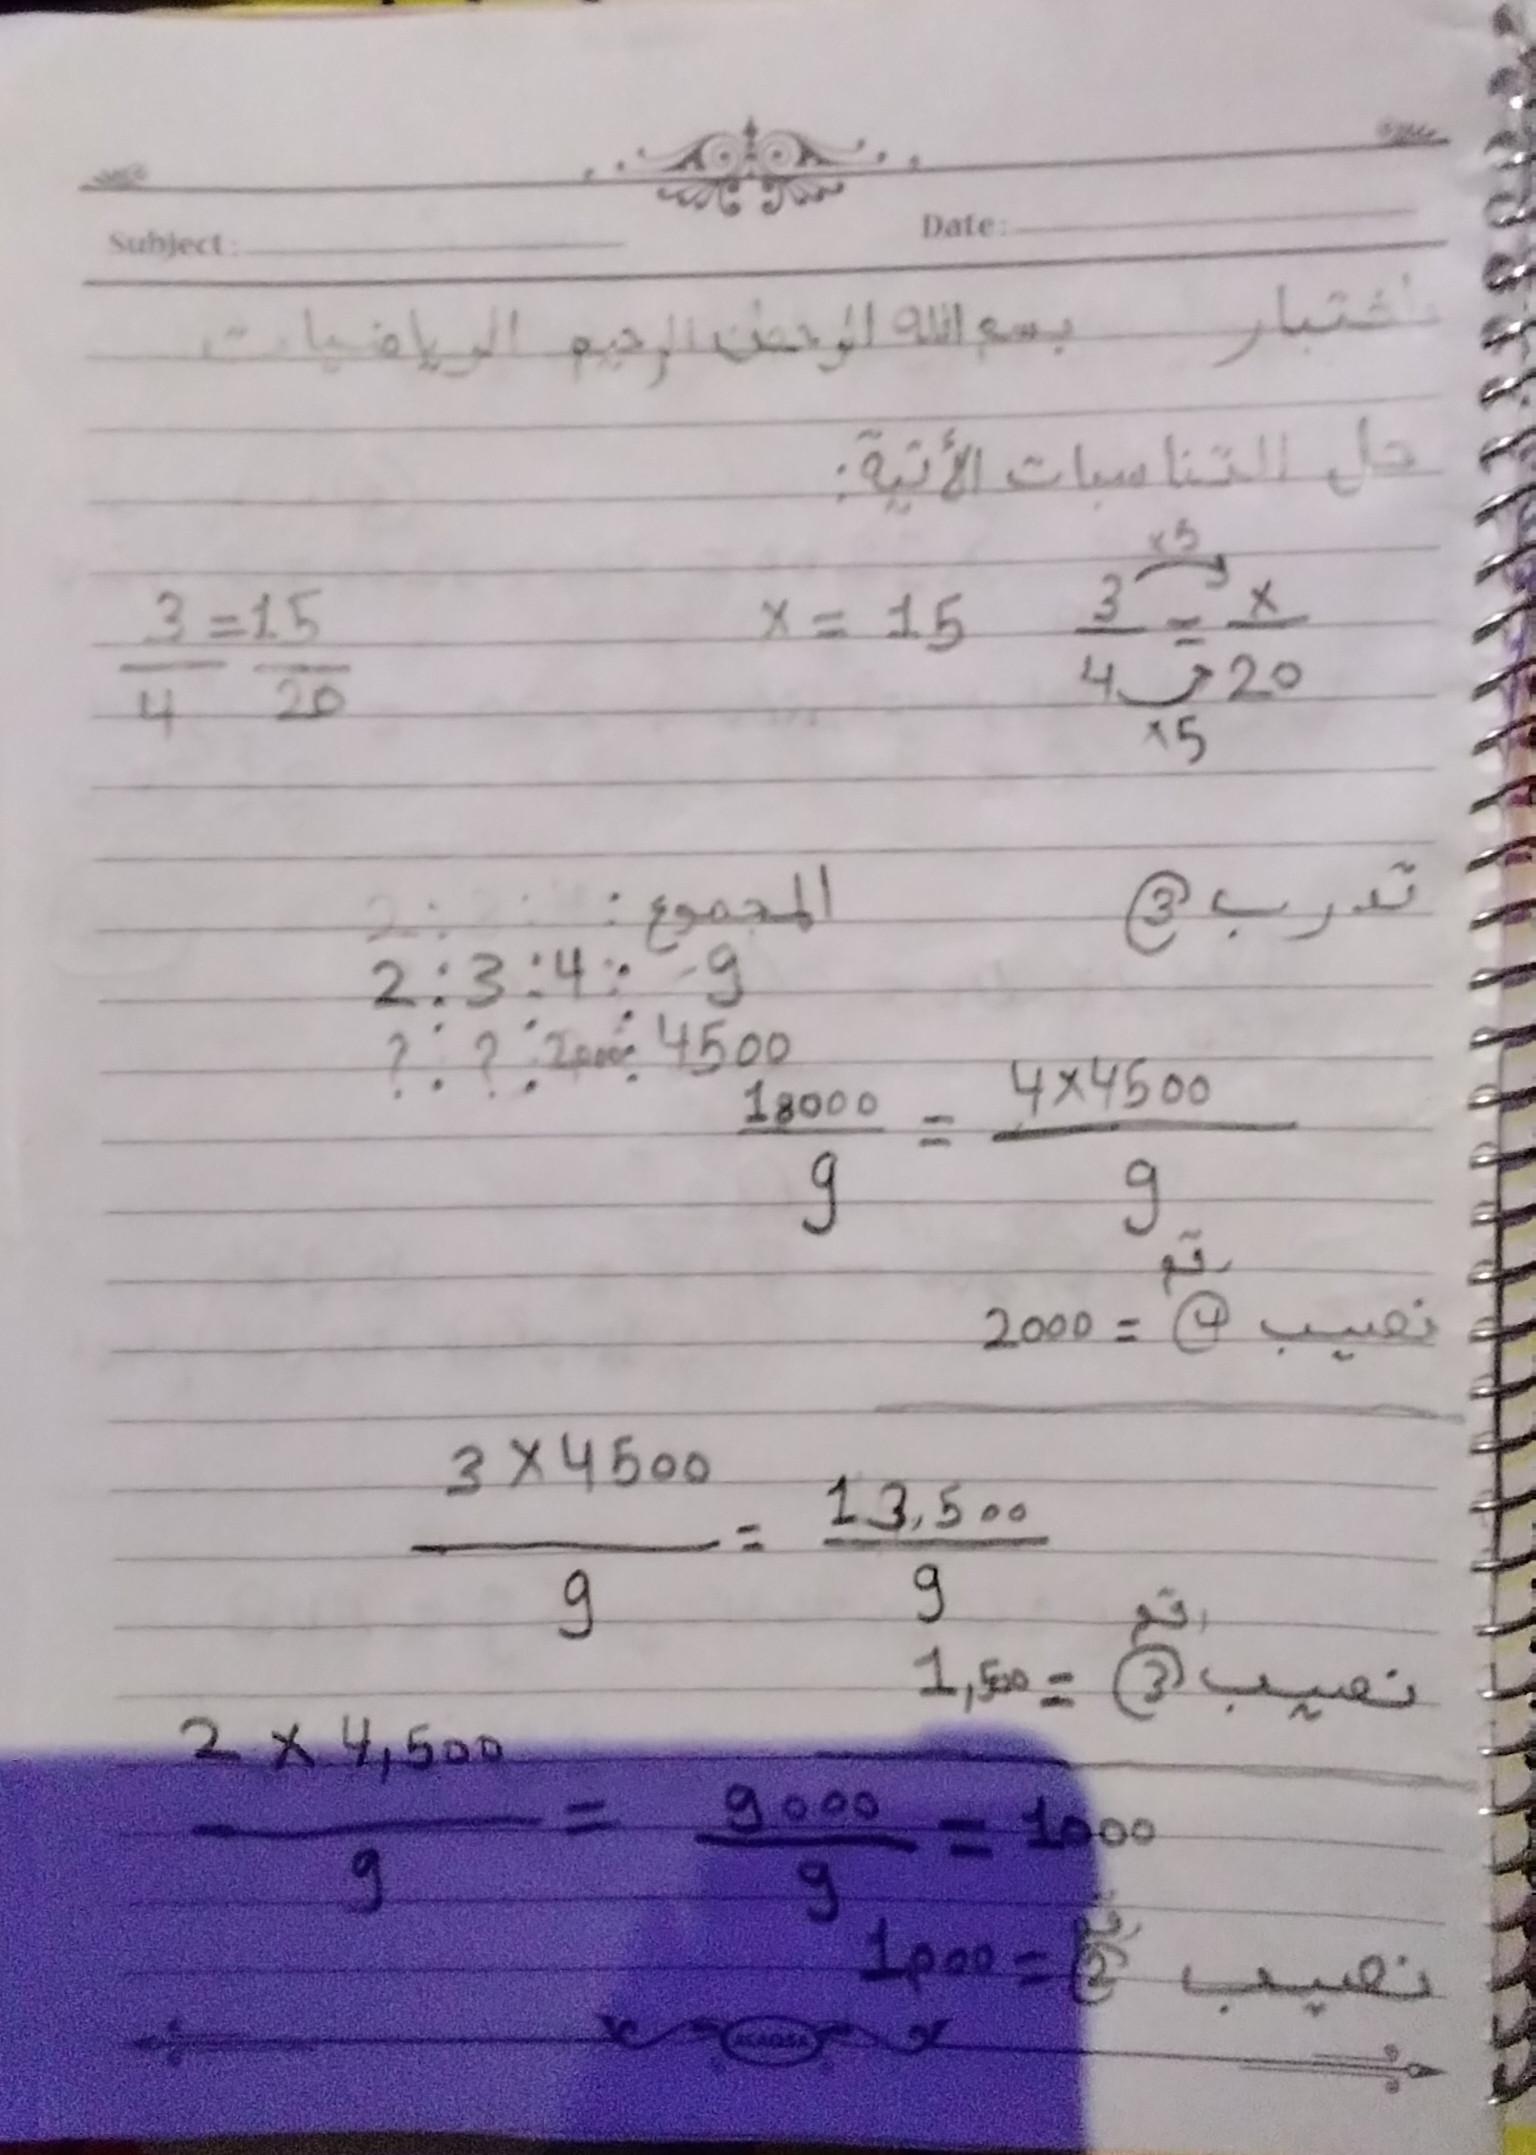 Subject: Date:
اختبار بسم الله الرحمن الرحيم الرياضيات
حل التناسبات الأتية:
×5
3/4 = x/20 x = 15 3/4 = 15/20
×5
تدرب ③ المجموع:
2 : 3 : 4 : 9
? : ? : 2000 : 4500
18000/9 = 4×4500/9
نصيب ④ = 2000
3 × 4500/9 = 13,500/9
نصيب ③ = 1,500
2 × 4,500/9 = 9000/9 = 1000
نصيب ② = 1000